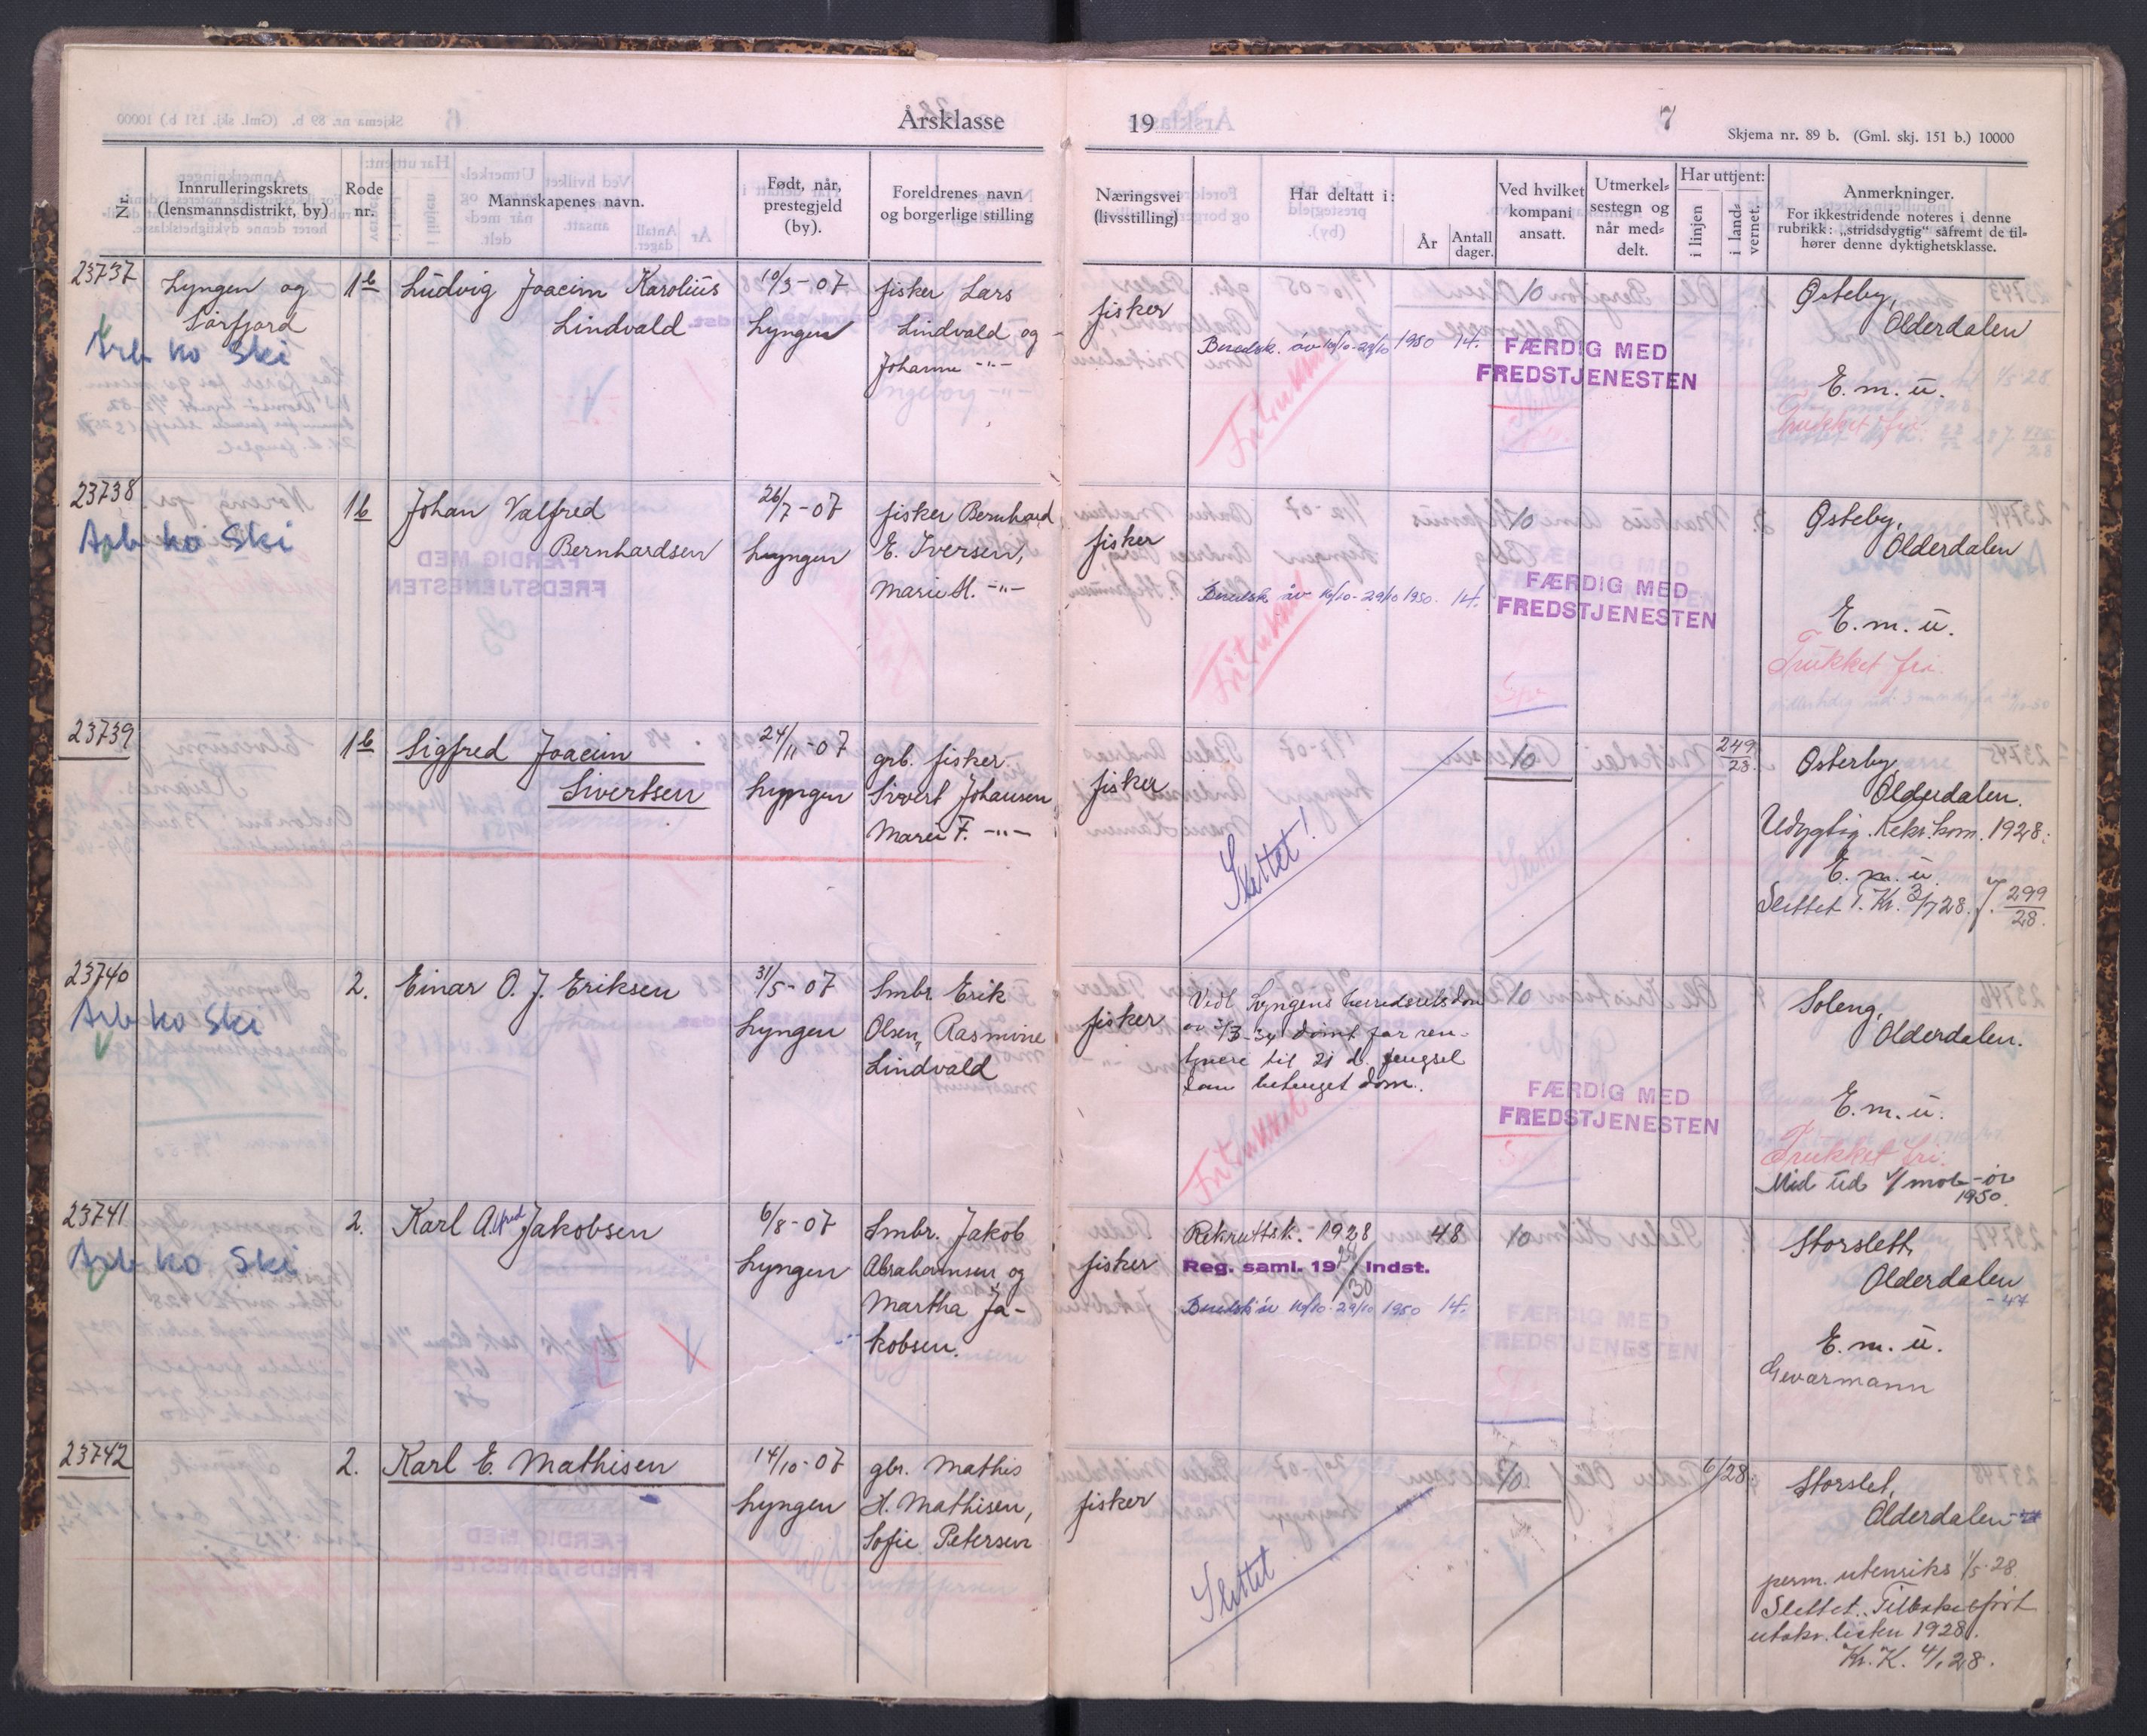 Årsklasse
19
7
Skjema nr. 89 b. (Gml. skj. 151 b.) 10000
Nr.
Innrulleringskrets
(lensmannsdistrikt, by)
Rode
nr.
Mannskapenes navn.
Født, når,
prestegjeld
(by).
Foreldrenes navn
og borgerlige stilling
Næringsvei
(livsstilling)
Har deltatt i:
År
Antall
dager.
Ved hvilket
kompani
ansatt.
Utmerkel-
sestegn og
når med-
delt.
Har uttjent:
i linjen
i land-
vernet.
Anmerkninger.
For ikkestridende noteres i denne
rubrikk: „stridsdygtig" såfremt de til-
hører denne dyktighetsklasse.
23737
Lyngen og
Sörfjord
Arb ko Ski
1b
Ludvig Joacim Karolius
Lindvald
10/3-07
Lyngen
fisker Lars
Lindvald og
Johanne -"-
fisker
Beredsk. öv 16/10-29/10 1950 14.
Fritrukket
10
FÆRDIG MED
FREDSTJENESTEN
Østeby,
Olderdalen
E. m. u.
Trukket fri
23738
Arb ko Ski
1b
Johan Valfred
Bernhardsen
26/7-07
Lyngen
fisker Bernhard
E. Iversen,
Marie H. -"-
fisker
Beredsk öv 16/10-29/10 1950. 14.
Fritrukket
10
FÆRDIG MED
FREDSTJENESTEN
Østeby,
Olderdalen
E. m. u.
Trukket fri.
23739
1b
Sigfred Joacim
Sivertsen
24/11-07
Lyngen
grb. fisker
Sivert Johansen
Marie F. -"-
fisker
Slettet!
10
249/28
Østerby,
Olderdalen.
Udygtig. Rekr. kom. 1928.
E. m. u.
Slettet T. Kr. 3/7 28. J. 299/28.
23740
Arb ko Ski
2.
Einar O. J. Eriksen
31/5-07
Lyngen
Smbr. Erik
Olsen, Rasmine
Lindvald
fisker
Vedt Lyngens herredsrettsdom
av 2/3-34 dömt for ren-
til 21 d. fengsel
betinget dom.
Fritrukket
10
FÆRDIG MED
FREDSTJENESTEN
Soleng,
Olderdalen.
E. m. u.
Trukket fri.
Mid ud f/ mob-öv
1950.
23741
Arb ko Ski
2.
Karl Alfred Jakobsen
6/8-07
Lyngen
Smbr. Jakob
Abrahamsen og
Martha Ja-
kobsen.
fisker
Rekruttsk. - 1928 48
Reg. saml. 1928/30 Indst.
Beredsk öv 16/10-29/10 1950 14.
10
FÆRDIG MED
FREDSTJENESTEN
Storslett,
Olderdalen
-47
E. m. u.
Gevärmann
23742
2.
Karl E. Mathisen
14/10-07
Lyngen
gbr. Mathis
H. Mathisen,
Sofie Petersen
fisker
Slettet
10
6/28.
Storslet,
Olderdalen
perm. utenriks 1/5-28.
Slettet. Tilbakeført
utskr. listen 1928.
Kr. K. 4/1 28.